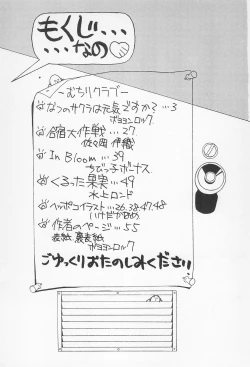 もくじ・・・
・・・なの
〜むちりクラブ〜
なつのサクラは元気ですか?・・3
ポヨヨンロック
合宿大作戦・・・27
佐々岡
In Bloom・・・39
ちびっ子ボーナス
くるった果実・・・49
水上ロンド
ヘッポコイラスト・・・26.38.47.48
作者のページ・・・55
表紙 裏表紙
ポヨヨンロック
ごゆっくりおたのしみください!